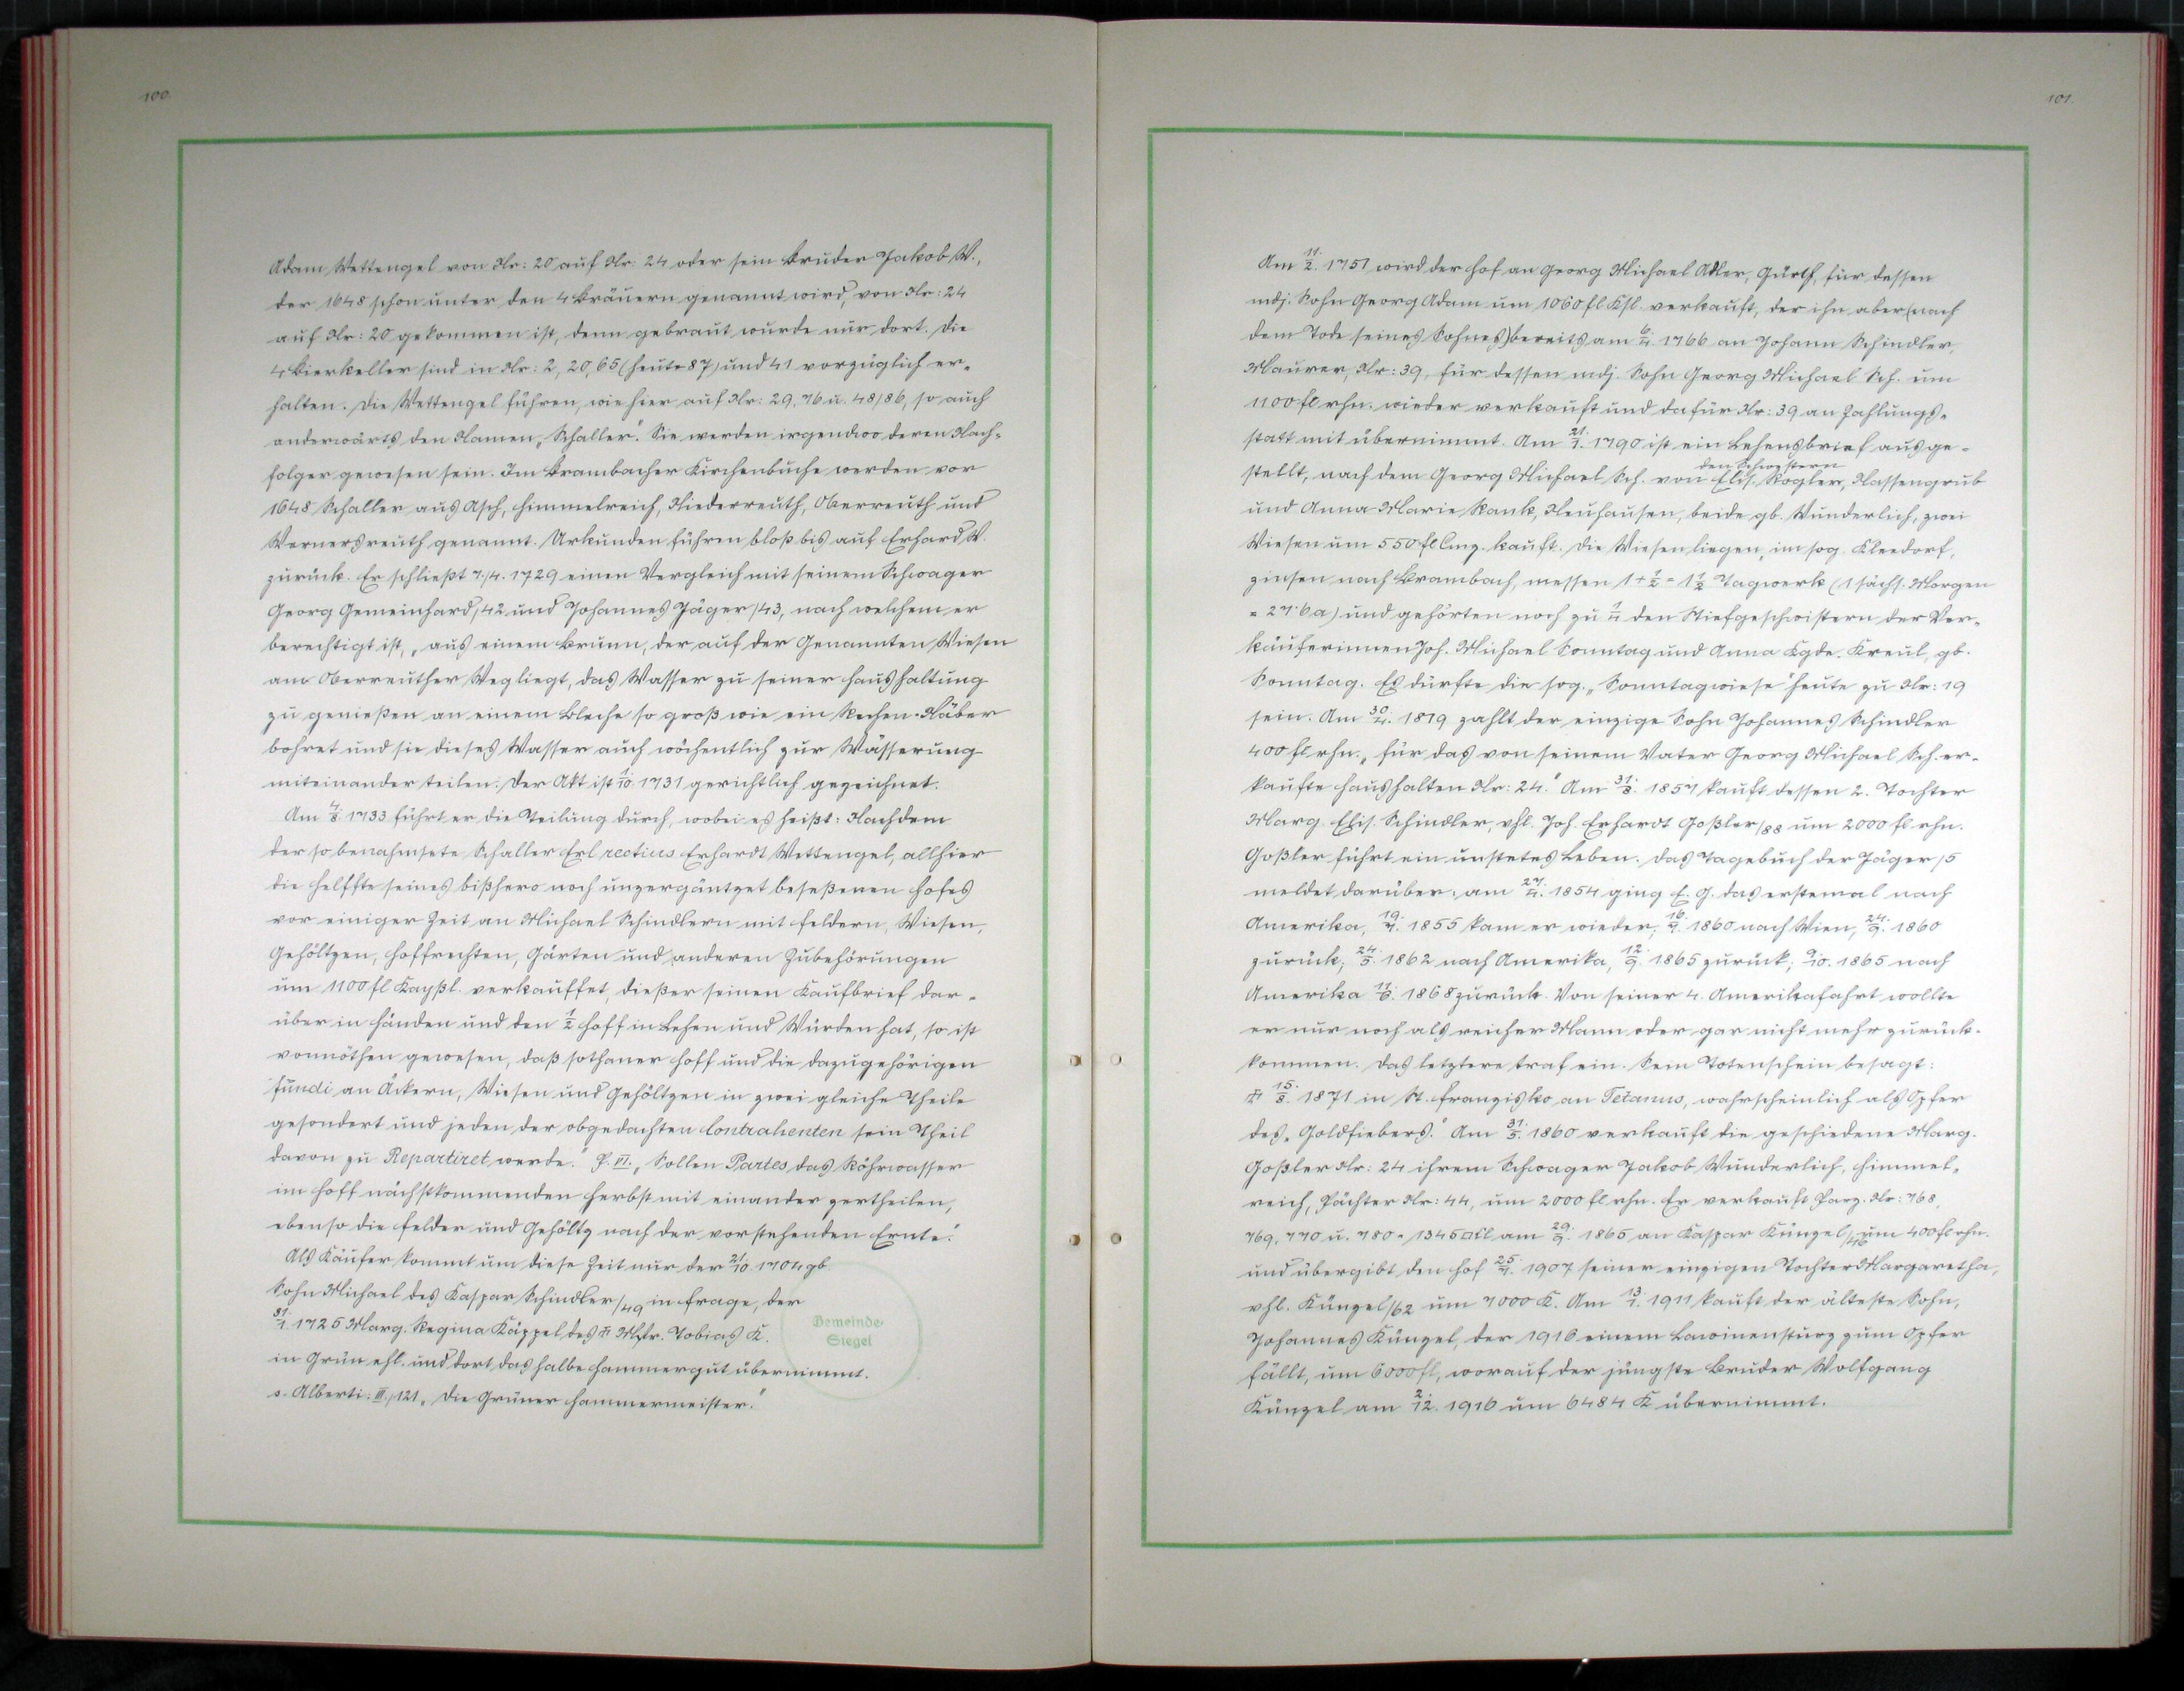 100.
Adam Wettengel von Nr: 20 auf Nr: 24 oder sein Bruder Jakob W.,
der 1648 schon unter den 4 Bräuern genannt wird, von Nr: 24
auf Nr: 20 gekommen ist, denn gebraut wurde nur dort. Die
4 Bierkeller sind in Nr: 2, 20, 65 (heute 87) und 41 vorzüglich er-
halten. Die Wettengel führen, wie hier auf Nr: 29, 76 u. 48/86, so auch
anderwärts den Namen „Schaller". Sie werden irgendwo deren Nach-
folger gewesen sein. Im Brambacher Kirchenbuche werden vor
1648 Schaller aus Asch, Himmelreich, Niederreuth, Oberreuth und
Wernersreuth genannt. Urkunden führen bloß bis auf Erhard W.
zurück. Er schließt 7./4. 1729 einen Vergleich mit seinem Schwager
Georg Gemeinhard/42 und Johannes Jäger/43, nach welchem er
berechtigt ist, „aus einem Brunn, der auf der Genannten Wiesen
am Oberreuther Weg liegt, das Wasser zu seiner Haushaltung
zu genießen an einem Bleche so groß wie ein Rechen-Näber
bohret und sie dieses Wasser auch wöchentlich zur Wässerung
miteinander teilen. Der Akt ist 1./10. 1731 gerichtlich gezeichnet.
Am 4./8. 1733 führt er die Teilung durch, wobei es heißt: Nachdem
der so benahmsete Schaller Erl rectius Erhardt Wettengel, allhier
die Helffte seines bißhero noch unzergäntzet beseßenen Hofes
vor einiger Zeit an Michael Schindlern mit Feldern, Wiesen,
Gehöltzen, Hoffrechten, Gärten und anderen Zubehörungen
um 1100 fl Kayßl. verkauffet, dießer seinen Kaufbrief dar-
über in Händen und den ½ Hoff in Lehen und Würden hat, so ist
vonnöthen gewesen, daß sothaner Hoff und die dazugehörigen
fundi an Äckern, Wiesen und Gehöltzen in zwei gleiche Theile
gesondert und jeden der obgedachten Contrahenten sein Theil
davon zu Repartiret werde." P. VI. „Sollen Partes das Röhrwasser
im Hoff nächstkommenden Herbst mit einander zertheilen,
ebenso die Felder und Gehöltz nach der vorstehenden Ernte."
Als Käufer kommt um diese Zeit nur der 21./10. 1704 gb.
Sohn Michael des Kaspar Schindler/49 in Frage, der
31./1. 1725 Marg. Regina Käppel des Mstr. Tobias K.
in Grün ehl. und dort das halbe Hammergut übernimmt.
s. Alberti: III./121 „Die Grüner Hammermeister."
Gemeinde-
Siegel
101.
Am 11./2. 1751 wird der Hof an Georg Michael Adler, Gürth, für dessen
mdj. Sohn Georg Adam um 1060 fl Ksl. verkauft, der ihn aber (nach
dem Tode seines Sohnes) bereits am 6./4. 1766 an Johann Schindler,
Maurer, Nr: 39, für dessen mdj. Sohn Georg Michael Sch. um
1100 fl rhn. wieder verkauft und dafür Nr: 39 an Zahlungs-
statt mit übernimmt. Am 21./1. 1790 ist ein Lehensbrief ausge-
stellt, nach dem Georg Michael Sch. von den Schwestern Elis. Rogler, Nassengrub
und Anna Marie Rank, Neuhausen, beide gb. Wunderlich, zwei
Wiesen um 550 fl Cmz. kauft. Die Wiesen liegen „im sog. Kleedorf,
zinsen nach Brambach, messen 1 + ½ = 1½ Tagwerk (1 sächs. Morgen
= 27·6 a) und gehörten noch zu ¼ den Stiefgeschwistern der Ver-
käuferinnen Joh. Michael Sonntag und Anna Kgde. Kreul, gb.
Sonntag. Es dürfte die sog. „Sonntagwiese" heute zu Nr: 19
sein. Am 30./4. 1819 zahlt der einzige Sohn Johannes Schindler
400 fl rhn. „für das von seinem Vater Georg Michael Sch. er-
kaufte Haushalten Nr: 24." Am 31./8. 1857 kauft dessen 2. Tochter
Marg. Elis. Schindler, vhl. Joh. Erhardt Goßler/88 um 2000 fl rhn.
Goßler führt ein unstetes Leben. Das Tagebuch der Jäger/5
meldet darüber: am 27./4. 1854 ging E. G. das erstemal nach
Amerika, 19./7. 1855 kam er wieder, 16./7. 1860 nach Wien, 24./9. 1860
zurück; 24./5. 1862 nach Amerika, 12./9. 1865 zurück; 9./10. 1865 nach
Amerika 11./6. 1868 zurück. Von seiner 4. Amerikafahrt wollte
er nur noch als reicher Mann oder gar nicht mehr zurück-
kommen. Das letztere traf ein. Sein Totenschein besagt:
15./8. 1871 in St. Franzisko an Tetanus, wahrscheinlich als Opfer
des „Goldfiebers." Am 31./5. 1860 verkauft die geschiedene Marg.
Goßler Nr: 24 ihrem Schwager Jakob Wunderlich, Himmel-
reich, Pächter Nr: 44, um 2000 fl rhn. Er verkauft Parz. Nr: 768,
769, 770 u. 780 - 1345 □Kl am 29./9. 1865 an Kaspar Künzel/46 um 400 fl rhn.
und übergibt den Hof 25./7. 1907 seiner einzigen Tochter Margaretha,
vhl. Künzel/62 um 7000 K. Am 13./1. 1911 kauft der älteste Sohn,
Johannes Künzel, der 1916 einem Lawinensturz zum Opfer
fällt, um 6000 fl, worauf der jüngste Bruder Wolfgang
Künzel am 2./12. 1916 um 6484 K übernimmt.